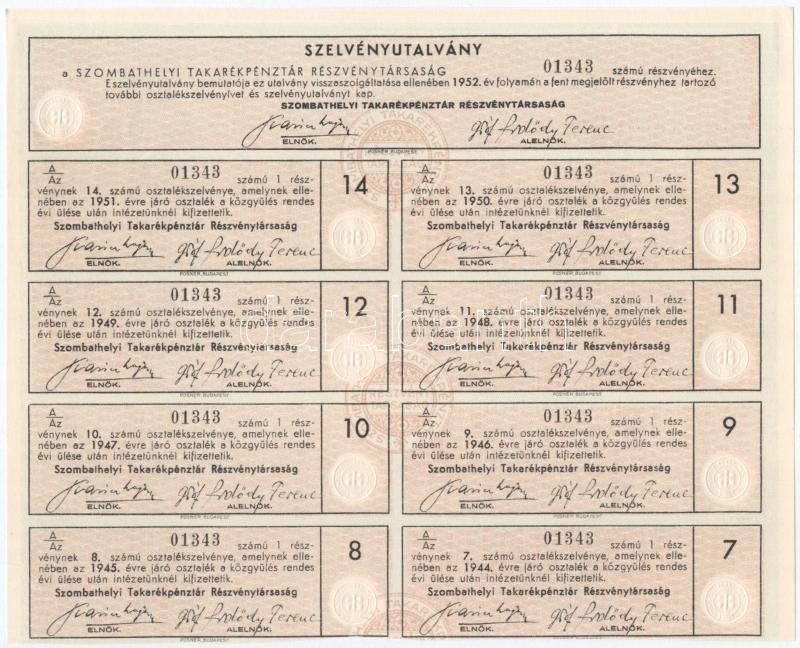 SZELVÉNYUTALVÁNY
a SZOMBATHELYI TAKARÉKPÉNZTÁR RÉSZVÉNYTÁRSASÁG 01343 számú részvényéhez.
E szelvényutalvány bemutatója ez utalvány visszaszolgáltatása ellenében 1952. év folyamán a fent megjelölt részvényhez tartozó
további osztalékszelvényívet és szelvényutalványt kap.
SZOMBATHELYI TAKARÉKPÉNZTÁR RÉSZVÉNYTÁRSASÁG
ELNÖK. ALELNÖK.
POSNER, BUDAPEST
A/Az 01343 számú 1 rész- 14
vénynek 14. számú osztalékszelvénye, amelynek elle-
nében az 1951. évre járó osztalék a közgyűlés rendes
évi ülése után intézetünknél kifizettetik.
Szombathelyi Takarékpénztár Részvénytársaság
ELNÖK. ALELNÖK.
POSNER, BUDAPEST
A/Az 01343 számú 1 rész- 13
vénynek 13. számú osztalékszelvénye, amelynek elle-
nében az 1950. évre járó osztalék a közgyűlés rendes
évi ülése után intézetünknél kifizettetik.
Szombathelyi Takarékpénztár Részvénytársaság
ELNÖK. ALELNÖK.
POSNER, BUDAPEST
A/Az 01343 számú 1 rész- 12
vénynek 12. számú osztalékszelvénye, amelynek elle-
nében az 1949. évre járó osztalék a közgyűlés rendes
évi ülése után intézetünknél kifizettetik.
Szombathelyi Takarékpénztár Részvénytársaság
ELNÖK. ALELNÖK.
POSNER, BUDAPEST
A/Az 01343 számú 1 rész- 11
vénynek 11. számú osztalékszelvénye, amelynek elle-
nében az 1948. évre járó osztalék a közgyűlés rendes
évi ülése után intézetünknél kifizettetik.
Szombathelyi Takarékpénztár Részvénytársaság
ELNÖK. ALELNÖK.
POSNER, BUDAPEST
A/Az 01343 számú 1 rész- 10
vénynek 10. számú osztalékszelvénye, amelynek elle-
nében az 1947. évre járó osztalék a közgyűlés rendes
évi ülése után intézetünknél kifizettetik.
Szombathelyi Takarékpénztár Részvénytársaság
ELNÖK. ALELNÖK.
POSNER, BUDAPEST
A/Az 01343 számú 1 rész- 9
vénynek 9. számú osztalékszelvénye, amelynek elle-
nében az 1946. évre járó osztalék a közgyűlés rendes
évi ülése után intézetünknél kifizettetik.
Szombathelyi Takarékpénztár Részvénytársaság
ELNÖK. ALELNÖK.
POSNER, BUDAPEST
A/Az 01343 számú 1 rész- 8
vénynek 8. számú osztalékszelvénye, amelynek elle-
nében az 1945. évre járó osztalék a közgyűlés rendes
évi ülése után intézetünknél kifizettetik.
Szombathelyi Takarékpénztár Részvénytársaság
ELNÖK. ALELNÖK.
POSNER, BUDAPEST
A/Az 01343 számú 1 rész- 7
vénynek 7. számú osztalékszelvénye, amelynek elle-
nében az 1944. évre járó osztalék a közgyűlés rendes
évi ülése után intézetünknél kifizettetik.
Szombathelyi Takarékpénztár Részvénytársaság
ELNÖK. ALELNÖK.
POSNER, BUDAPEST